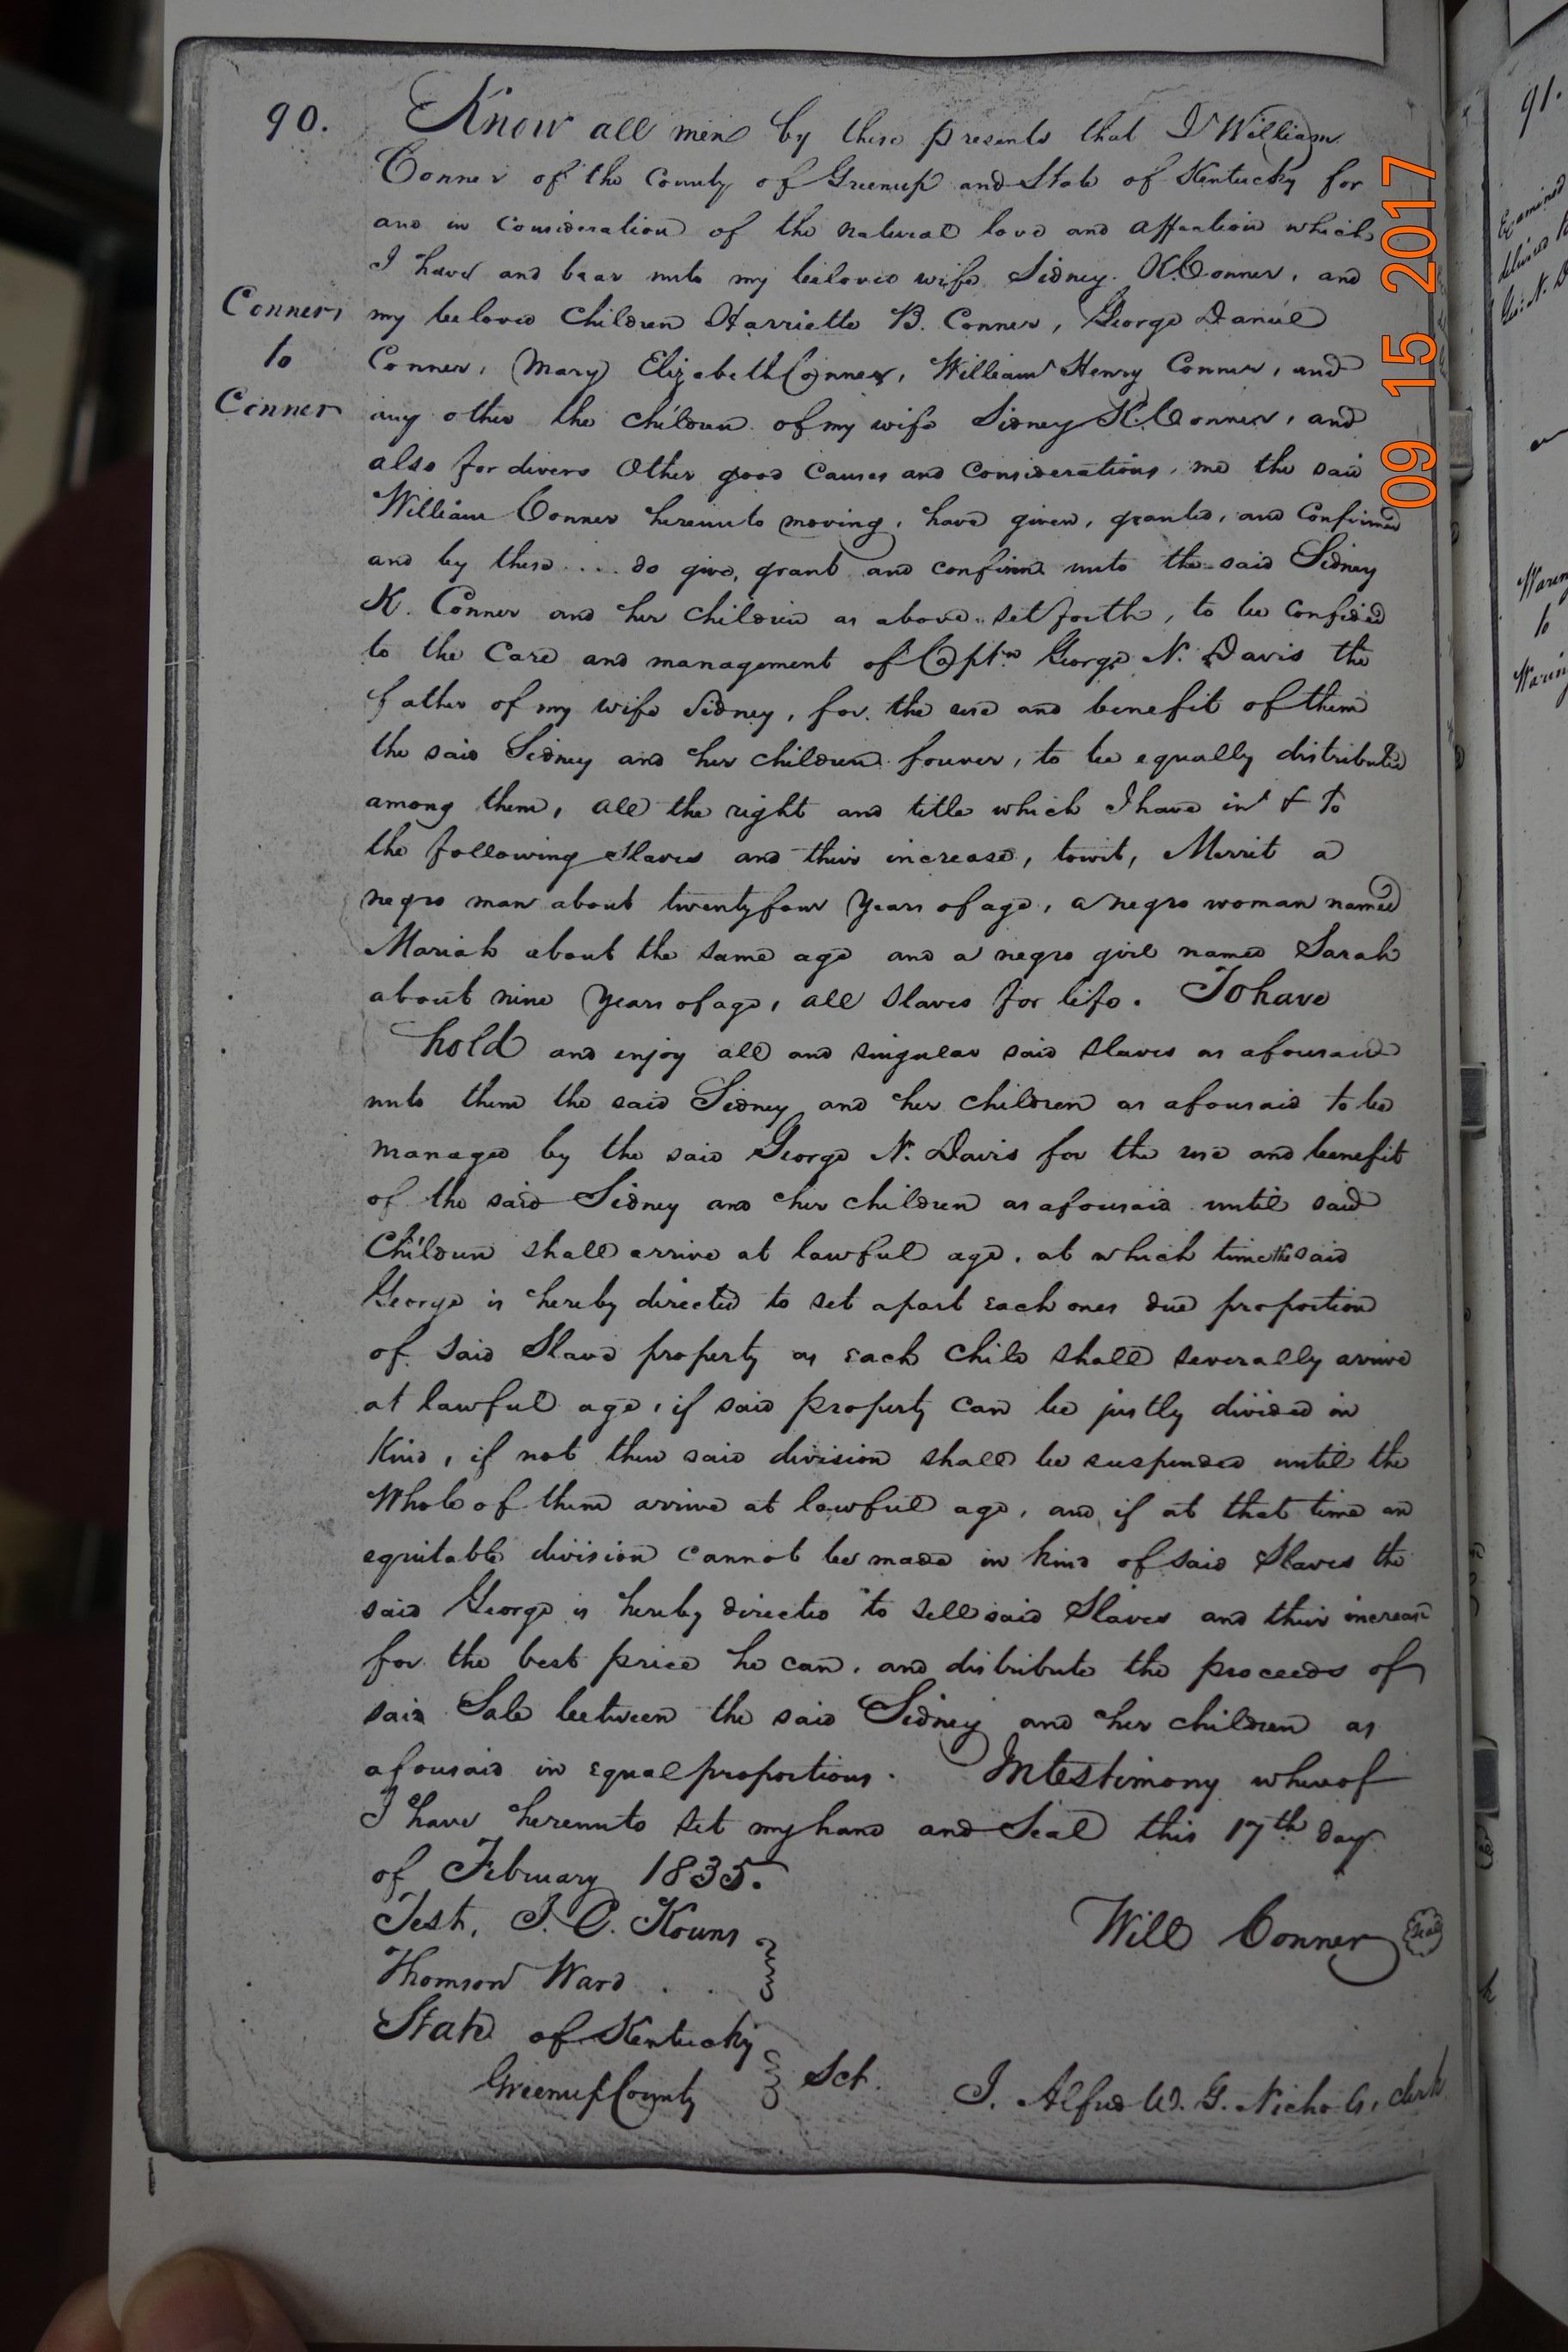 90.
Know all men by these presents that I William
Conner of the County of Greenup and State of Kentucky for
and in Consideration of the natural love and affection which
I have and bear unto my beloved wife Sidney K. Conner, and
Conner, my beloved Children Harriette B. Conner, George Daniel
to Conner, Mary Elizabeth Conner, William Henry Conner, and
Conner any other the children of my wife Sidney K. Conner, and
also for divers Other good Causes and Considerations, me the said
William Conner hereunto moving, have given, granted, and Confirmed
and by these .... do give, grant and confirm unto the said Sidney
K. Conner and her children as above set forth, to be Confided
to the Care and management of Captn George N. Davis the
father of my wife Sidney, for the use and benefit of them
the said Sidney and her children forever, to be equally distributed
among them, all the right and title which I have in & to
the following Slaves and their increase, towit, Merrit a
negro man about twentyfour Years of age, a negro woman named
Mariah about the same age and a negro girl named Sarah
about nine Years of age, all Slaves for life. To have
hold and enjoy all and singular said slaves as aforesaid
unto them the said Sidney and her children as aforesaid to be
managed by the said George N. Davis for the use and benefit
of the said Sidney and her children as aforesaid until said
Children shall arrive at lawful age, at which time the said
George is hereby directed to set apart each ones due proportion
of said Slave property as each child shall severally arrive
at lawful age, if said property can be justly divided in
Kind, if not then said division shall be suspended until the
Whole of them arrive at lawful age, and if at that time an
equitable division cannot be made in kind of said Slaves the
said George is hereby directed to sell said Slaves and their increase
for the best price he can, and distribute the proceeds of
said Sale between the said Sidney and her children as
aforesaid in equal proportions. In testimony whereof
I have hereunto set my hand and Seal this 17th day
of February 1835.
Test, J. C. Kouns
Will Conner Seal
Thomson Ward . .
State of Kentucky
Greenup County Sct. I. Alfred W. G. Nichols, clerk
09 15 2017
91.
Examined
Geo: N. D
Warin
to
Warin